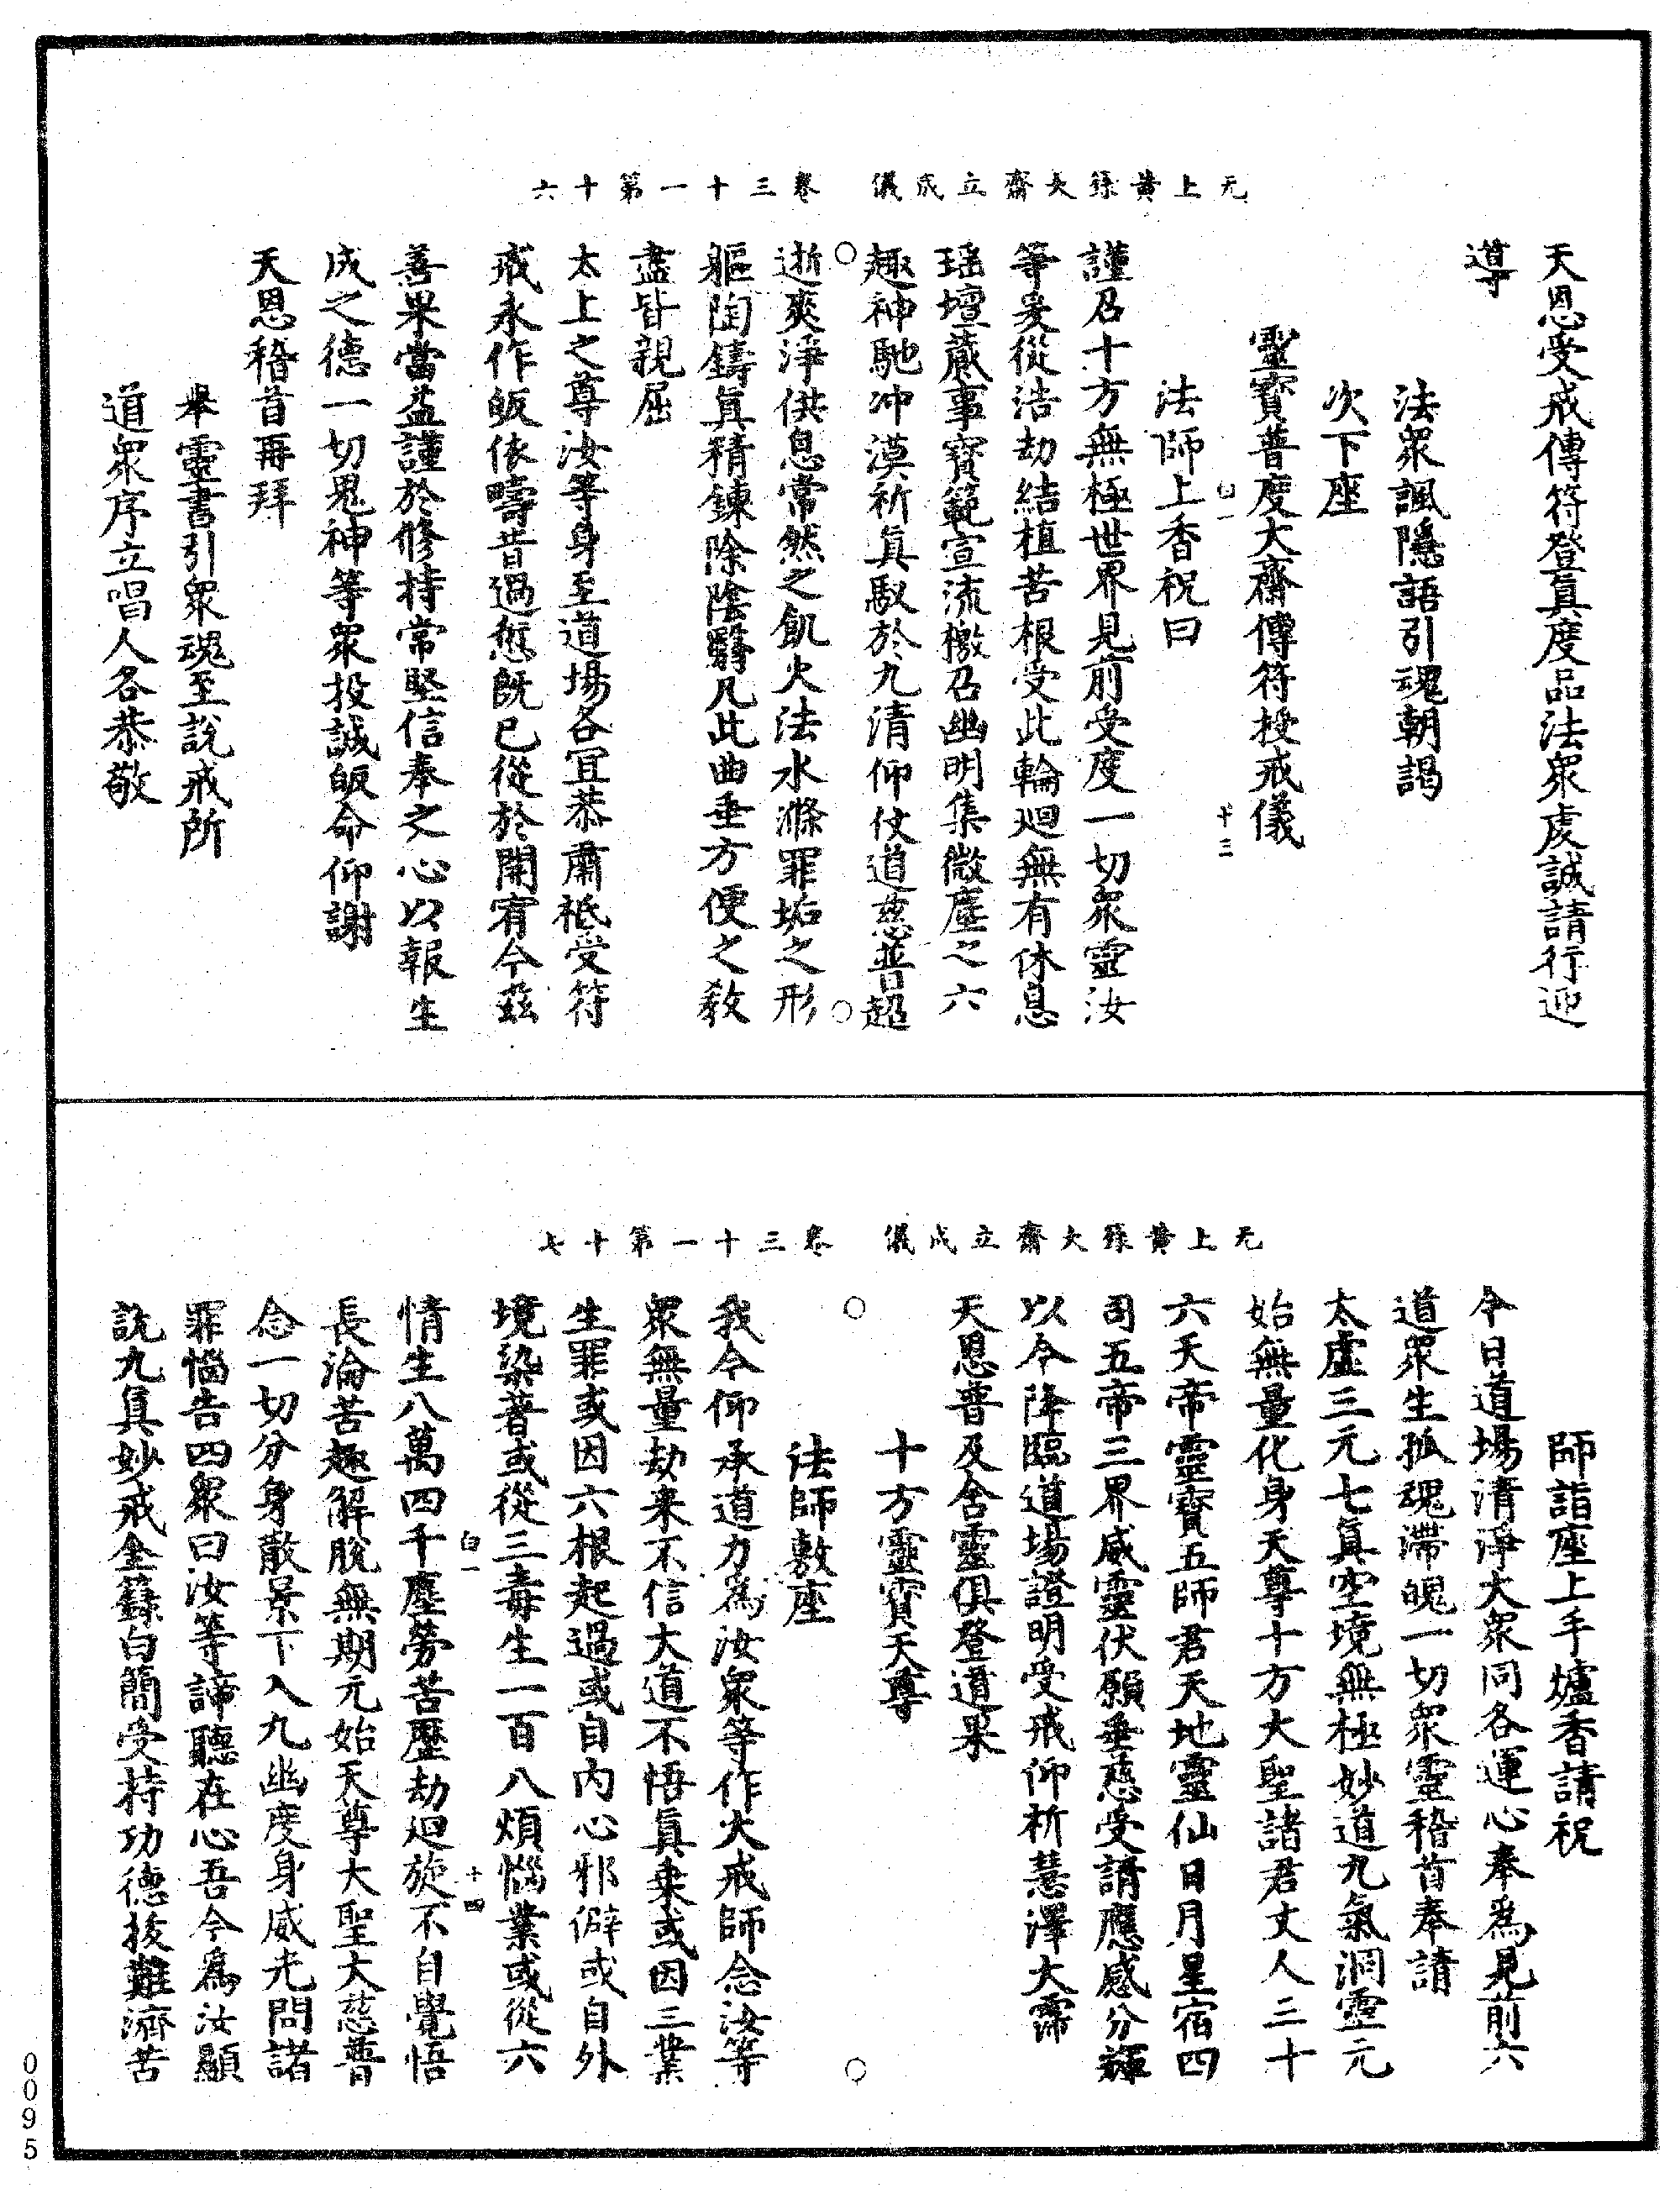 无上黃籙大齋立成儀　卷三十一第十六
天恩受戒傳符登真度品法眾虔誠請行迎
導
法眾諷隱語引魂朝謁
次下座
靈寶普度大齋傳符授戒儀
白一　十三
法師上香祝曰
謹召十方無極世界見前受度一切眾靈汝
等爰從浩劫結植苦根受此輪迴無有休息
瑶壇蕆事寶範宣流檄召幽明集微塵之六
趣神馳冲漠祈真馭於九清仰仗道慈普超
逝爽淨供息常然之飢火法水滌罪垢之形
軀陶鑄真精鍊除陰翳凡此曲垂方便之教
盡皆親屈
太上之尊汝等身至道場各宜恭肅祗受符
戒永作皈依疇昔過愆旣已從於開宥今茲
善果當益謹於修持常堅信奉之心以報生
成之德一切鬼神等眾投誠皈命仰謝
天恩稽首再拜
舉靈書引眾魂至說戒所
道眾序立唱人各恭敬
无上黃籙大齋立成儀　卷三十一第十七
師詣座上手爐香請祝
今日道場清淨大眾同各運心奉為見前六
道眾生孤魂滯魄一切眾靈稽首奉請
太虛三元七真空境無極妙道九氣洞靈元
始無量化身天尊十方大聖諸君丈人三十
六天帝靈寶五師君天地靈仙日月星宿四
司五帝三界威靈伏願垂慈受請應感分輝
以今降臨道場證明受戒仰祈慧澤大霈
天恩普及含靈俱登道果
十方靈寶天尊
法師敷座
我今仰承道力為汝眾等作大戒師念汝等
眾無量劫来不信大道不悟真乗或因三業
生罪或因六根起過或自內心邪僻或自外
境染著或從三毒生一百八煩惱業或從六
白一　十四
情生八萬四千塵勞苦歷劫迴旋不自覺悟
長淪苦趣解脫無期元始天尊大聖大慈普
念一切分身散景下入九幽度身威光問諸
罪惱告四眾曰汝等諦聽在心吾今為汝顯
說九真妙戒金籙白簡受持功德拔難濟苦
0095